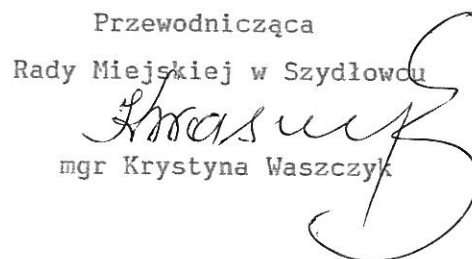 Przewodnicząca
Rady Miejskiej w Szydłowcu
mgr Krystyna Waszczyk